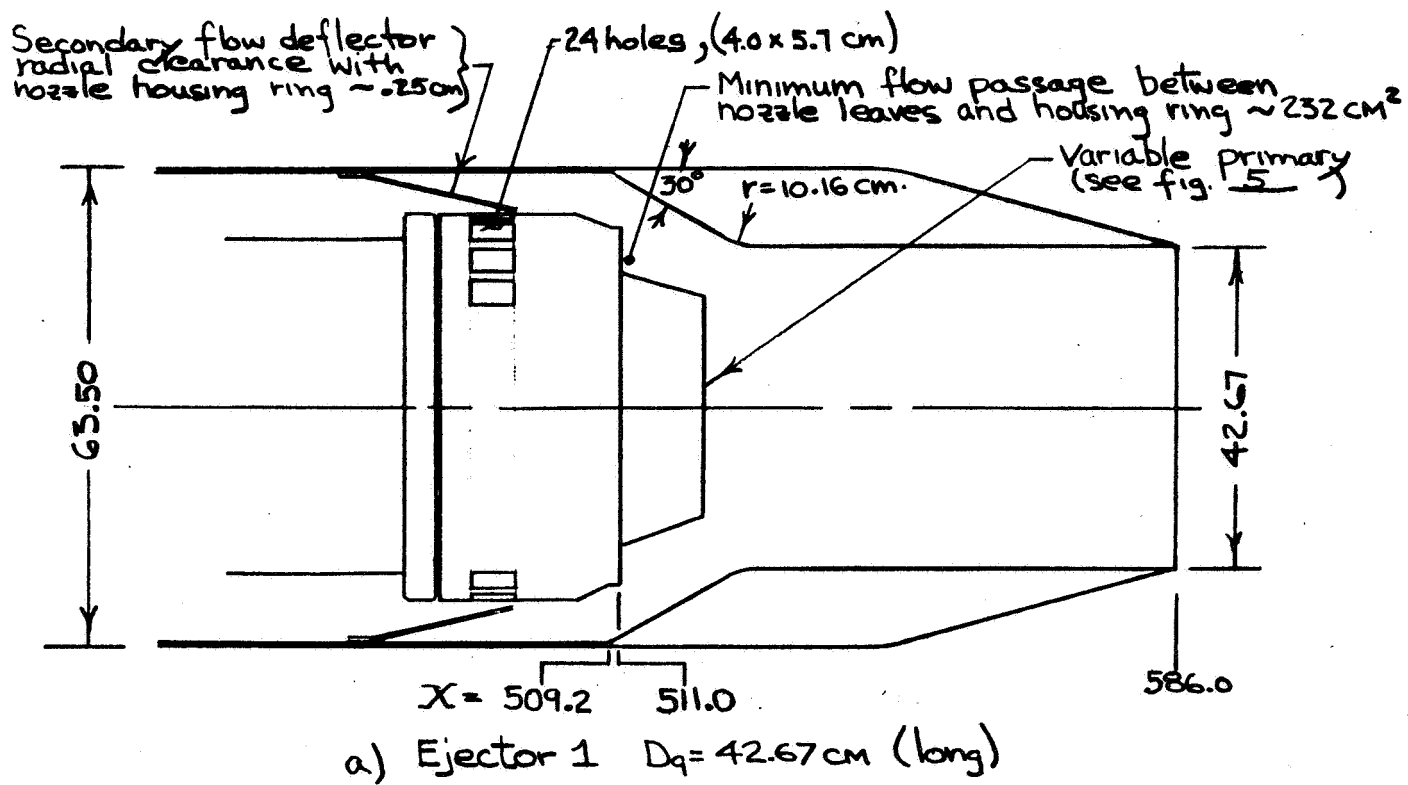 Secondary flow deflector
radial clearance with
nozzle housing ring ~.25cm
24 holes, (4.0 x 5.7 cm)
Minimum flow passage between
nozzle leaves and housing ring ~232 CM²
Variable primary
(see fig. 5 )
30°
r=10.16 cm.
65.50
42.67
X= 509.2 511.0
586.0
a) Ejector 1 D9= 42.67 CM (long)